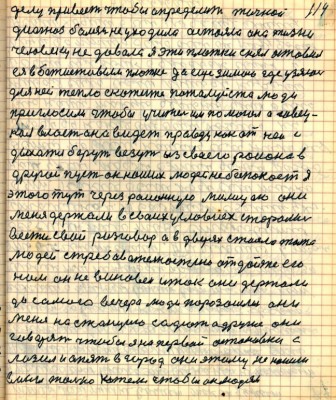 114
делу привест чтобы определить точной
диагноз болезн не уходила а стояла она тизни
человеку не давала я эти платки снял оставил
ся в батистовым платке да еще зимою где узял
для ней тепло скажите пожалуйста люди
приглосили чтобы учител им помогал а
власт она видет правду как от ней с
берут везут из своего района в
другой пуст он наших людей не беспокоет я
этого тут через районную милицию они
меня держали в своих условиях старались
вести свой разговор а в дверях стояло тма
людей с требователностю отдойте его
нам он не виновен и так они держали
до самого вечера люди они
меня на станцию садют а другие они
говорят чтобы я на первой остановки с
лозил и опят в город они этому не
только хотели чтобы он людям